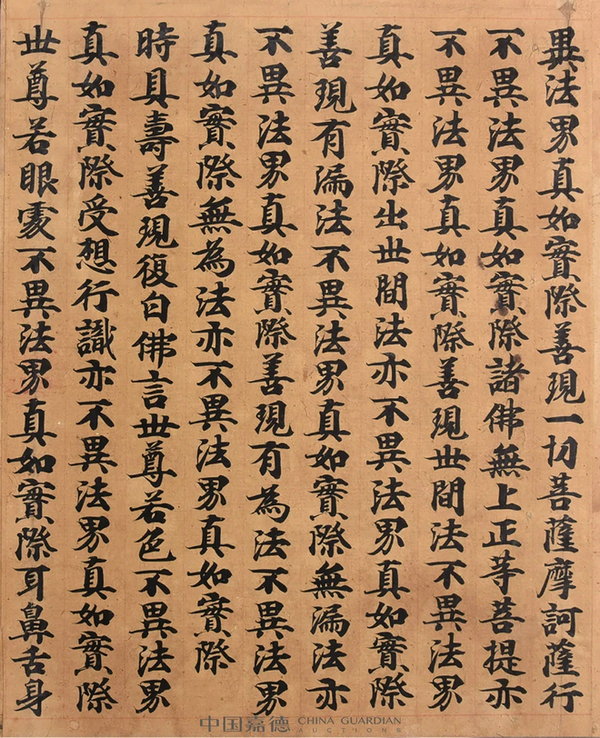 異法界真如實際善現一切菩薩摩訶薩行
不異法界真如實際諸佛無上正等菩提亦
不異法界真如實際善現世間法不異法界
真如實際出世間法亦不異法界真如實際
善現有漏法不異法界真如實際無漏法亦
不異法界真如實際善現有為法不異法界
真如實際無為法亦不異法界真如實際
時具壽善現復白佛言世尊若色不異法界
真如實際受想行識亦不異法界真如實際
世尊若眼處不異法界真如實際耳鼻舌身
中国嘉德 CHINA GUARDIAN
AUCTIONS